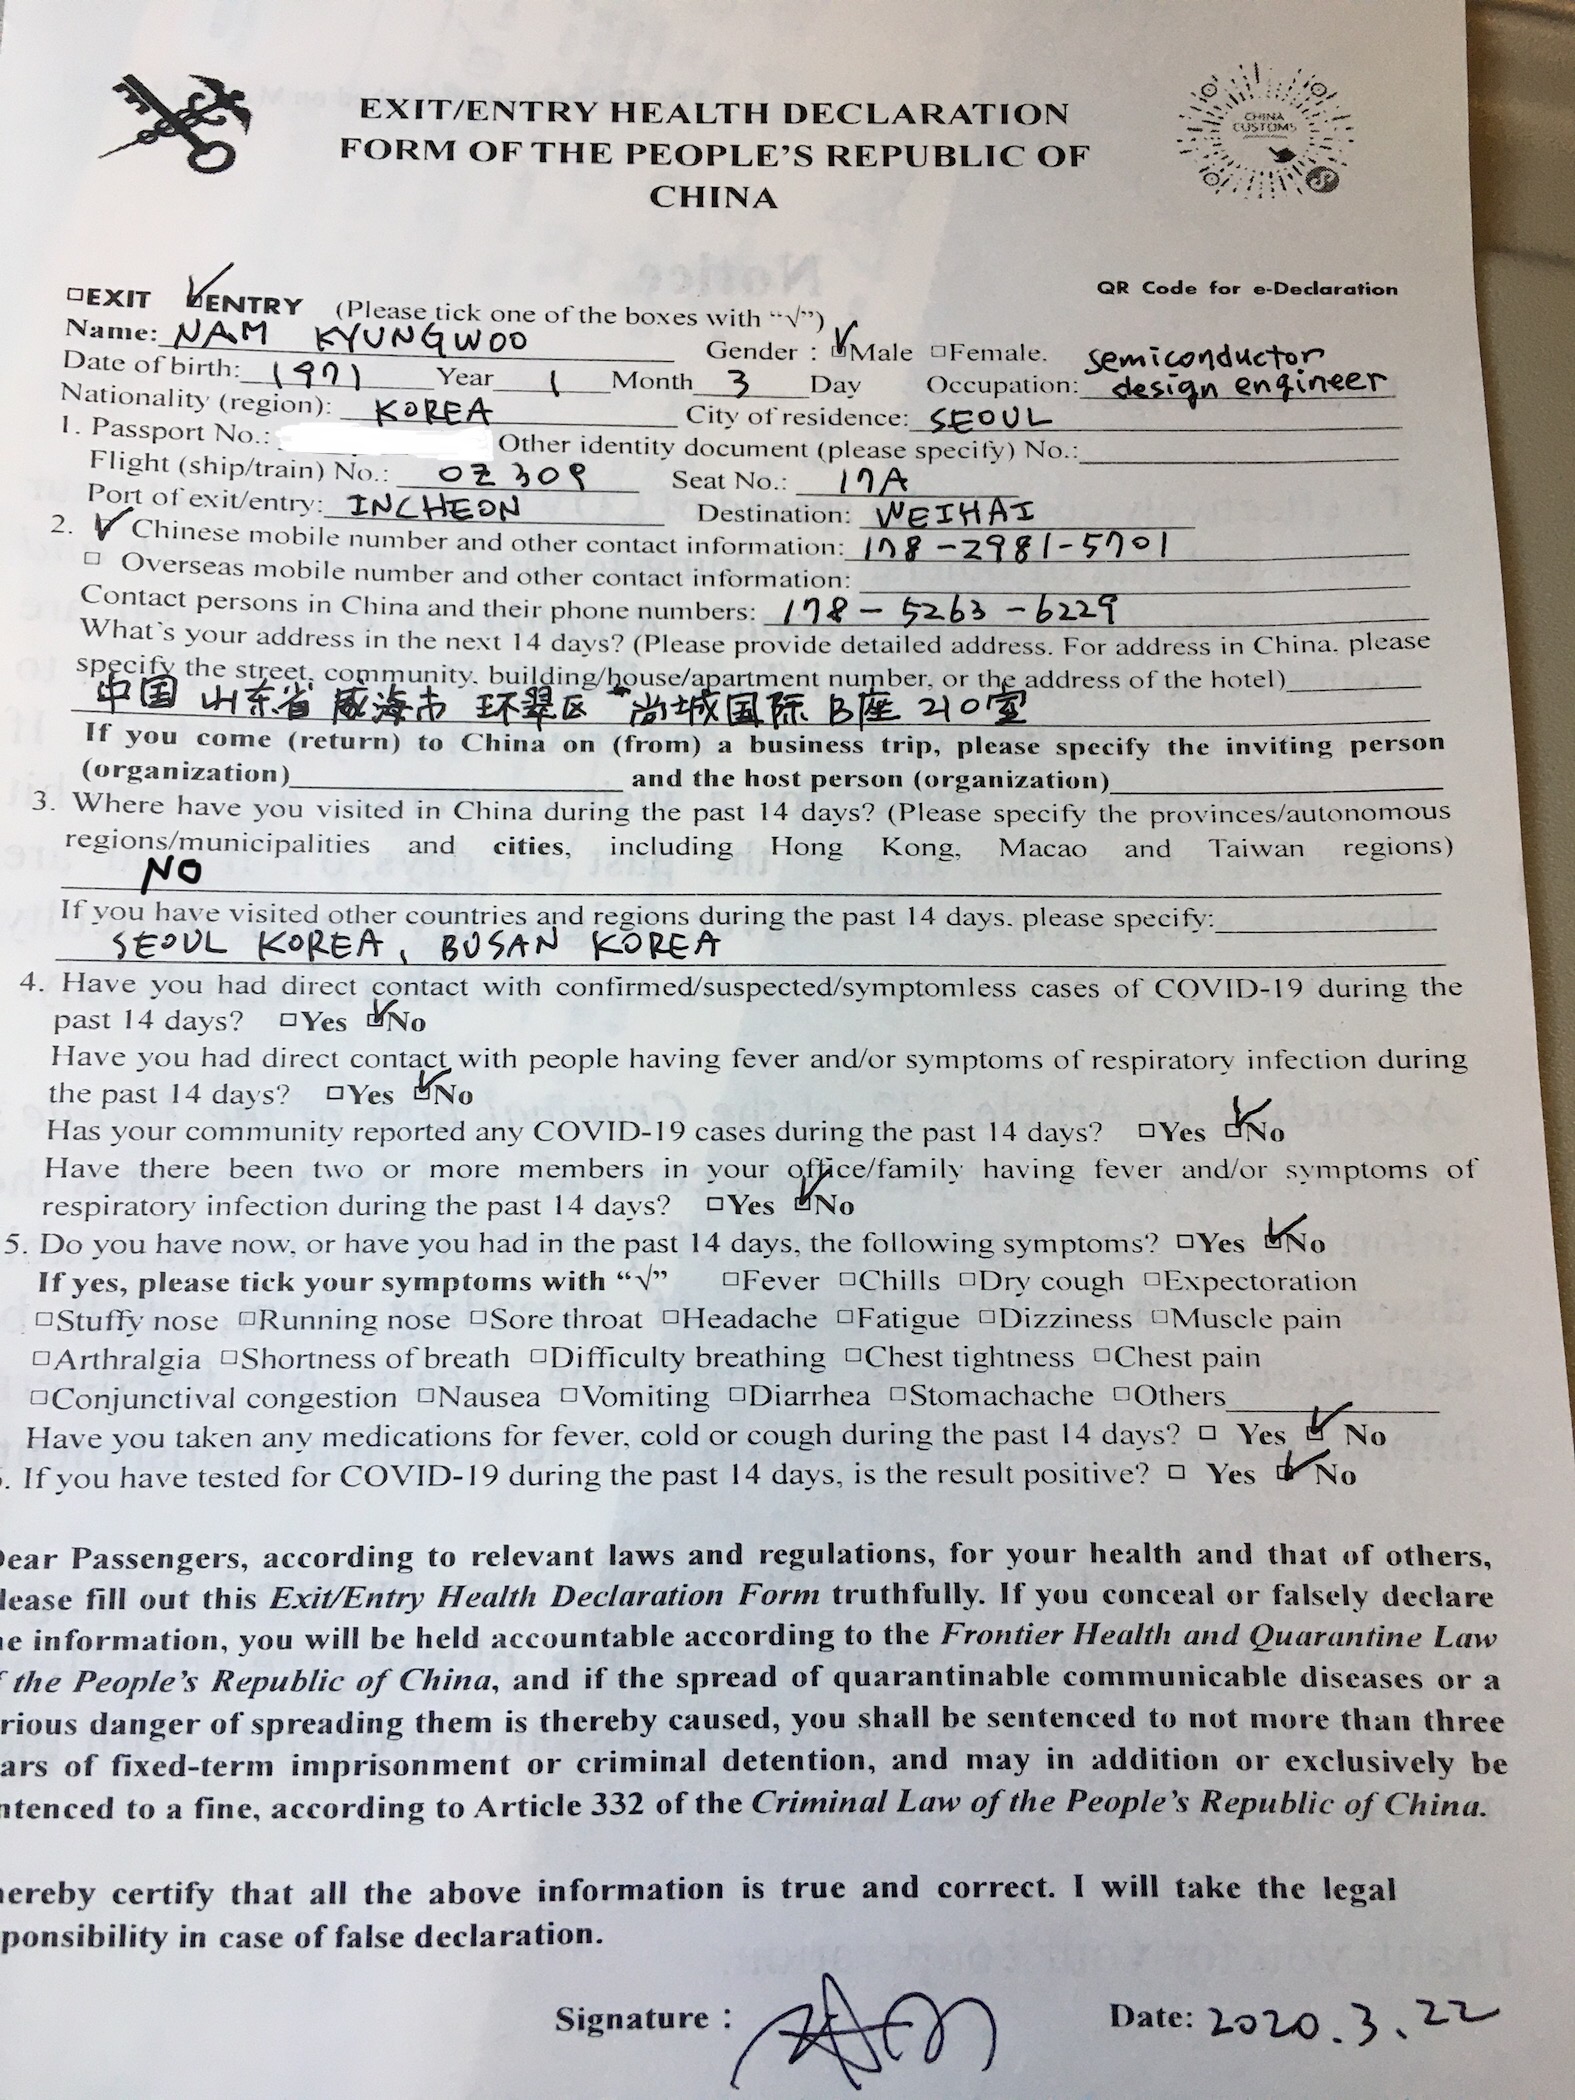 EXIT/ENTRY HEALTH DECLARATION
FORM OF THE PEOPLE'S REPUBLIC OF
CHINA
CHINA
CUSTOMS
QR Code for e-Declaration
□EXIT ☑ENTRY (Please tick one of the boxes with “√”)
Name: NAM KYUNGWOO Gender : ☑Male □Female.
Date of birth: 1971 Year 1 Month 3 Day Occupation: semiconductor design engineer
Nationality (region): KOREA City of residence: SEOUL
1. Passport No.: Other identity document (please specify) No.:
Flight (ship/train) No.: OZ 309 Seat No.: 17A
Port of exit/entry: INCHEON Destination: WEIHAI
2. ☑ Chinese mobile number and other contact information: 178-2981-5701
□ Overseas mobile number and other contact information:
Contact persons in China and their phone numbers: 178-5263-6229
What's your address in the next 14 days? (Please provide detailed address. For address in China, please
specify the street, community, building/house/apartment number, or the address of the hotel)
中国 山东省 威海市 环翠区 尚城国际 B座 210室
If you come (return) to China on (from) a business trip, please specify the inviting person
(organization) and the host person (organization)
3. Where have you visited in China during the past 14 days? (Please specify the provinces/autonomous
regions/municipalities and cities, including Hong Kong, Macao and Taiwan regions)
NO
If you have visited other countries and regions during the past 14 days, please specify:
SEOUL KOREA, BUSAN KOREA
4. Have you had direct contact with confirmed/suspected/symptomless cases of COVID-19 during the
past 14 days? □Yes ☑No
Have you had direct contact with people having fever and/or symptoms of respiratory infection during
the past 14 days? □Yes ☑No
Has your community reported any COVID-19 cases during the past 14 days? □Yes ☑No
Have there been two or more members in your office/family having fever and/or symptoms of
respiratory infection during the past 14 days? □Yes ☑No
5. Do you have now, or have you had in the past 14 days, the following symptoms? □Yes ☑No
If yes, please tick your symptoms with “√” □Fever □Chills □Dry cough □Expectoration
□Stuffy nose □Running nose □Sore throat □Headache □Fatigue □Dizziness □Muscle pain
□Arthralgia □Shortness of breath □Difficulty breathing □Chest tightness □Chest pain
□Conjunctival congestion □Nausea □Vomiting □Diarrhea □Stomachache □Others
Have you taken any medications for fever, cold or cough during the past 14 days? □ Yes ☑ No
. If you have tested for COVID-19 during the past 14 days, is the result positive? □ Yes ☑ No
ear Passengers, according to relevant laws and regulations, for your health and that of others,
lease fill out this Exit/Entry Health Declaration Form truthfully. If you conceal or falsely declare
e information, you will be held accountable according to the Frontier Health and Quarantine Law
the People's Republic of China, and if the spread of quarantinable communicable diseases or a
rious danger of spreading them is thereby caused, you shall be sentenced to not more than three
ars of fixed-term imprisonment or criminal detention, and may in addition or exclusively be
ntenced to a fine, according to Article 332 of the Criminal Law of the People's Republic of China.
ereby certify that all the above information is true and correct. I will take the legal
ponsibility in case of false declaration.
Signature : Date: 2020.3.22